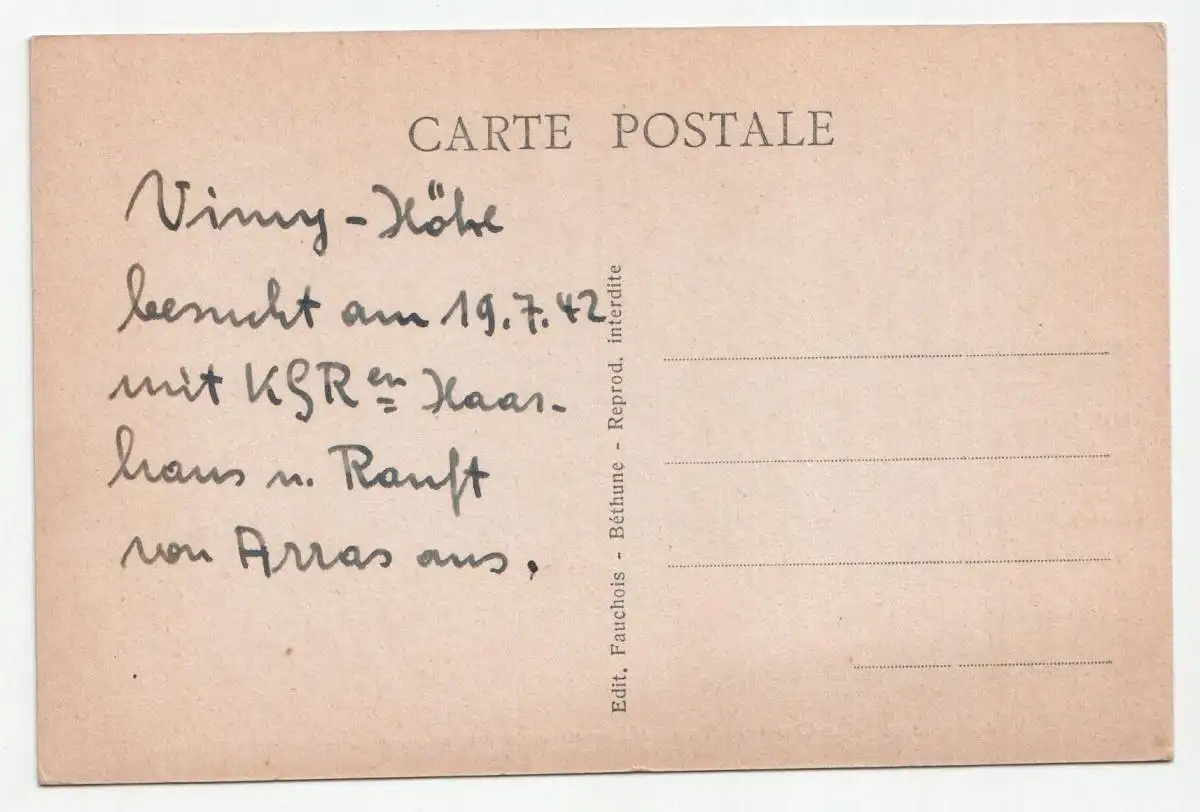 CARTE POSTALE
Vimy-Höhe
besucht am 19.7.42
mit KGRen Haar-
haus u. Ranft
von Arras aus.
Edit. Fauchois - Béthune - Reprod. interdite